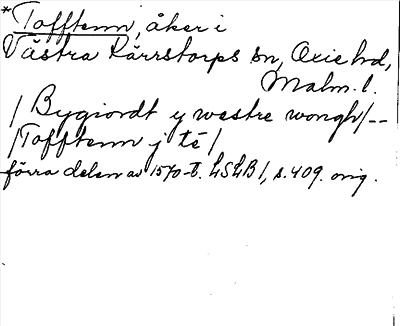 *Tofftenn, åker i
Västra Kärrstorps sn, Oxie hd,
Malm. l.
/ Bygiordt y westre wongh/--
/Tofftenn j tē /
förra delen av 1570-t. LSLB 1, s. 409. orig.